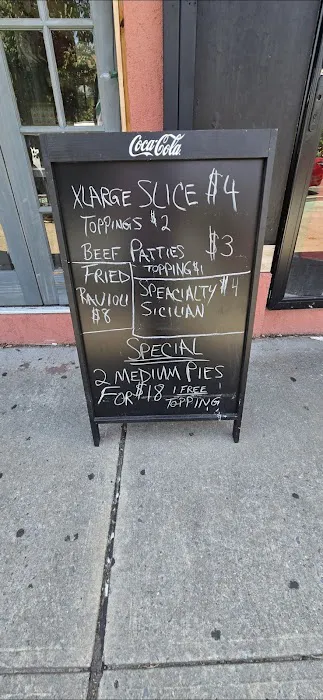 Coca-Cola
XLARGE SLICE $4
TOPPINGS $2
BEEF PATTIES $3
TOPPING $1
FRIED
RAVIOLI
$8
SPEACIALTY $4
SICILIAN
SPECIAL
2 MEDIUM PIES
FOR $18 1 FREE
TOPPING